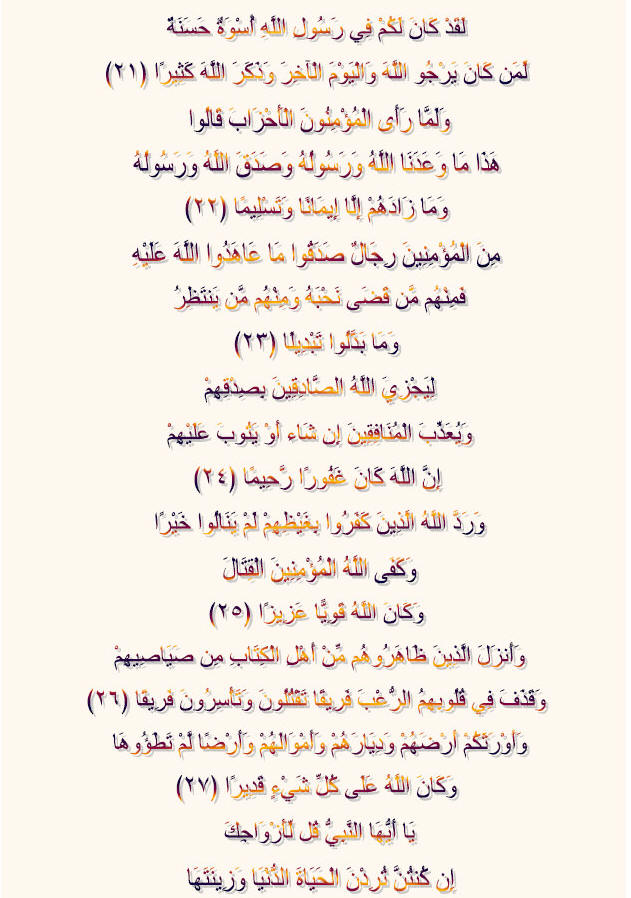 لَقَدْ كَانَ لَكُمْ فِي رَسُولِ اللَّهِ أُسْوَةٌ حَسَنَةٌ
لِّمَن كَانَ يَرْجُو اللَّهَ وَالْيَوْمَ الْآخِرَ وَذَكَرَ اللَّهَ كَثِيرًا (٢١)
وَلَمَّا رَأَى الْمُؤْمِنُونَ الْأَحْزَابَ قَالُوا
هَذَا مَا وَعَدَنَا اللَّهُ وَرَسُولُهُ وَصَدَقَ اللَّهُ وَرَسُولُهُ
وَمَا زَادَهُمْ إِلَّا إِيمَانًا وَتَسْلِيمًا (٢٢)
مِنَ الْمُؤْمِنِينَ رِجَالٌ صَدَقُوا مَا عَاهَدُوا اللَّهَ عَلَيْهِ
فَمِنْهُم مَّن قَضَى نَحْبَهُ وَمِنْهُم مَّن يَنتَظِرُ
وَمَا بَدَّلُوا تَبْدِيلًا (٢٣)
لِيَجْزِيَ اللَّهُ الصَّادِقِينَ بِصِدْقِهِمْ
وَيُعَذِّبَ الْمُنَافِقِينَ إِن شَاء أَوْ يَتُوبَ عَلَيْهِمْ
إِنَّ اللَّهَ كَانَ غَفُورًا رَّحِيمًا (٢٤)
وَرَدَّ اللَّهُ الَّذِينَ كَفَرُوا بِغَيْظِهِمْ لَمْ يَنَالُوا خَيْرًا
وَكَفَى اللَّهُ الْمُؤْمِنِينَ الْقِتَالَ
وَكَانَ اللَّهُ قَوِيًّا عَزِيزًا (٢٥)
وَأَنزَلَ الَّذِينَ ظَاهَرُوهُم مِّنْ أَهْلِ الْكِتَابِ مِن صَيَاصِيهِمْ
وَقَذَفَ فِي قُلُوبِهِمُ الرُّعْبَ فَرِيقًا تَقْتُلُونَ وَتَأْسِرُونَ فَرِيقًا (٢٦)
وَأَوْرَثَكُمْ أَرْضَهُمْ وَدِيَارَهُمْ وَأَمْوَالَهُمْ وَأَرْضًا لَّمْ تَطَؤُوهَا
وَكَانَ اللَّهُ عَلَى كُلِّ شَيْءٍ قَدِيرًا (٢٧)
يَا أَيُّهَا النَّبِيُّ قُل لِّأَزْوَاجِكَ
إِن كُنتُنَّ تُرِدْنَ الْحَيَاةَ الدُّنْيَا وَزِينَتَهَا